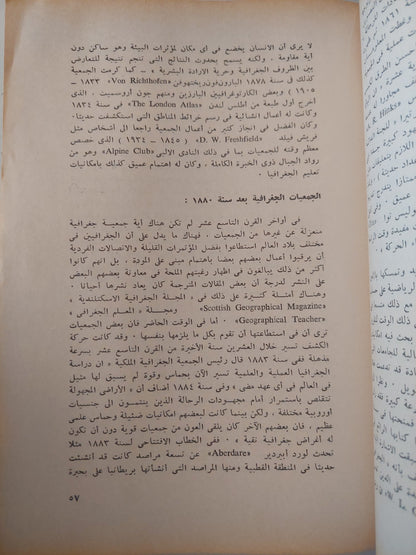 لا يرى أن الانسان يخضع فى أى مكان لمؤثرات البيئة وهو ساكن دون
أية مقاومة • ولكنه يسمح بحدوث النتائج التى تنجم نتيجة للتعارض
بين الظروف الجغرافية وحرية الارادة البشرية » • كما كرمت الجمعية
كذلك فى سنة ١٨٧٨ البارون فون ريختهوفن «Von Richthofen» ١٨٣٣ –
١٩٠٥ ) وبعض الكارتوغرافيين البارزين ومنهم جون اروسميث • الذى
أخرج أول طبعة من أطلس لندن «The London Atlas» فى سنة ١٨٣٤
وكانت له أعمال انشائية فى رسم خرائط المناطق التى استكشفت حديثا •
وكان الفضل فى انجاز كثير من أعمال الجمعية راجعا الى أشخاص مثل
فريش فيلد «D. W. Freshfield» ( ١٨٤٥ – ١٩٣٤ ) الذى خصص
معظم وقته للجمعيات بما فى ذلك النادى الالبى «Alpine Club» وهو من
رواد الجبال ذوى الخبرة الكاملة ، وكان له اهتمام عميق كذلك بامكانيات
تعليم الجغرافيا •
الجمعيات الجغرافية بعد سنة ١٨٨٠ :
فى أواخر القرن التاسع عشر لم تكن هناك أية جمعية جغرافية
منعزلة عن غيرها من الجمعيات • فهناك ما يدل على أن الجغرافيين فى
مختلف بلاد العالم استطاعوا بفضل المؤتمرات القليلة والاتصالات الفردية
أن يرقبوا أعمال بعضهم بعضا باهتمام مبنى على المودة ، بل انهم كانوا
أكثر من ذلك يبالغون فى اظهار رغبتهم الملحة فى معاونة بعضهم البعض
على النشر لدرجة أن بعض المقالات المترجمة كان يعاد نشرها أحيانا •
وهناك أمثلة كثيرة على ذلك فى « المجلة الجغرافية الاسكتلندية »
«Scottish Geographical Magazine» ومجلة « المعلم الجغرافى »
«Geographical Teacher» • أما فى الوقت الحاضر فان بعض الجمعيات
ترى أن فى استطاعتها أن تقوم بكل ما يلزمها بنفسها • وقد كانت حركة
الكشف تسير خلال العشرين سنة الأخيرة من القرن التاسع عشر بسرعة
مذهلة ففى سنة ١٨٨٣ قال رئيس الجمعية الجغرافية الملكية « ان دراسة
الجغرافيا العملية والعلمية تسير الآن بحماس وقوة لم يسبق لها مثيل
فى العالم فى أى عهد مضى » وفى سنة ١٨٨٤ أضاف أن « الاراضى المجهولة
تتقلص باستمرار أمام مجهودات الرحالة الذين ينتمون الى جنسيات
أوروبية مختلفة ، ولكن بينما كانت لبعضهم امكانيات ضئيلة وحماس علمى
عظيم ، فان بعضهم الآخر كان يلقى العون من جمعيات قوية دون أن تكون
له أغراض جغرافية نقية » • ففى الخطاب الافتتاحى لسنة ١٨٨٣ مثلا
تحدث لورد أبيردير «Aberdare» عن تسعة مراصد كانت قد أنشئت
حديثا فى المنطقة القطبية ومنها المراصد التى أنشأتها بريطانيا على بحيرة
٥٧